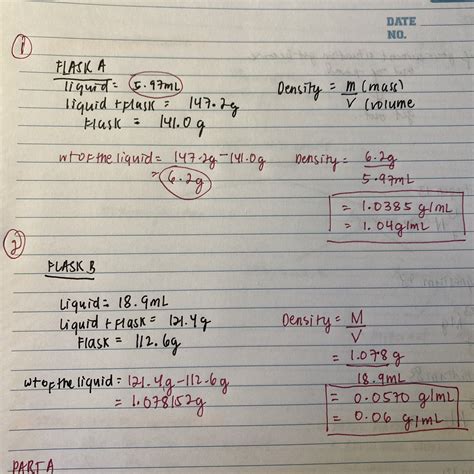 DATE
NO.
1
FLASK A
liquid = 5.97mL
liquid + flask = 147.2g
Flask = 141.0g
Density = m (mass)
V (volume
wt of the liquid = 147.2g - 141.0g
= 6.2g
Density = 6.2g
5.97mL
= 1.0385 g/mL
= 1.04g/mL
2
FLASK B
Liquid = 18.9mL
Liquid + Flask = 121.4g
Flask = 112.6g
Density = M
V
= 1.078 g
18.9mL
wt of the liquid = 121.4g - 112.6g
= 1.078152g
= 0.0570 g/mL
= 0.06 g/mL
PART A